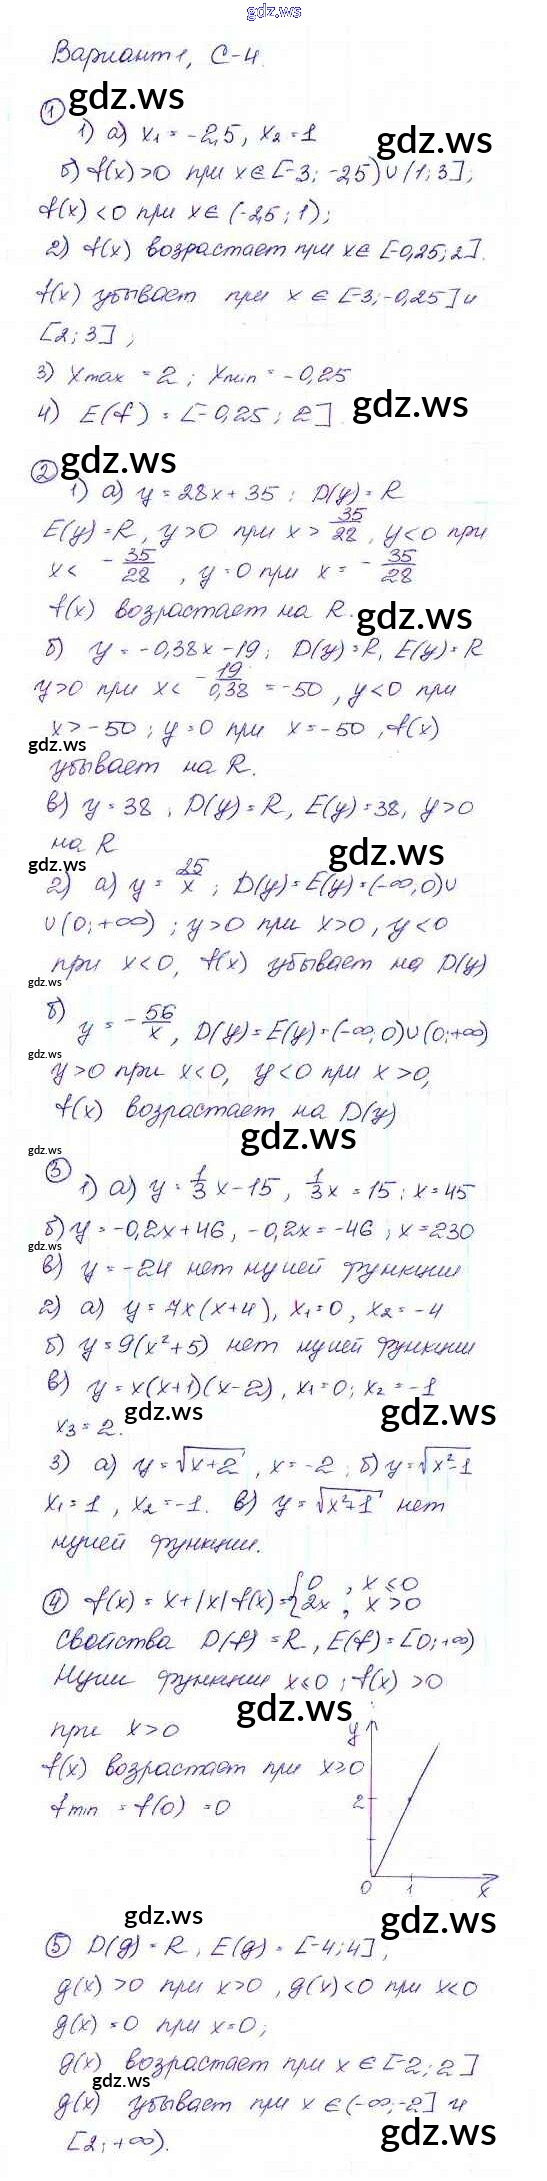 gdz.ws
Вариант 1, С-4.
gdz.ws
① 1) а) x₁ = -2,5, x₂ = 1
gdz.ws
б) f(x)>0 при x∈[-3; -2,5)∪(1;3];
f(x)<0 при x∈(-2,5; 1);
2) f(x) возрастает при x∈[-0,25;2].
f(x) убывает при x∈[-3;-0,25] и
[2; 3];
3) xmax = 2; xmin = -0,25
4) E(f) = [-0,25; 2].
gdz.ws
② gdz.ws
1) а) y = 28x+35; D(y)=R
E(y)=R, y>0 при x> 35/28, y<0 при
x< -35/28, y=0 при x= -35/28
f(x) возрастает на R.
gdz.ws
б) y = -0,38x-19; D(y)=R, E(y)=R
y>0 при x< -19/0,38 = -50, y<0 при
x>-50; y=0 при x=-50, f(x)
gdz.ws
убывает на R.
в) y = 38, D(y)=R, E(y)=38, y>0
на R
gdz.ws
gdz.ws
2) а) y = 25/x; D(y)=E(y)=(-∞,0)∪
∪(0;+∞); y>0 при x>0, y<0
при x<0, f(x) убывает на D(y)
gdz.ws
gdz.ws
б) y = -56/x, D(y)=E(y)=(-∞;0)∪(0;+∞)
gdz.ws
y>0 при x<0, y<0 при x>0,
f(x) возрастает на D(y)
gdz.ws
gdz.ws
③ 1) а) y = 1/3x-15, 1/3x = 15; x=45
б) y=-0,2x+46, -0,2x=-46; x=230
gdz.ws
в) y = -24 нет нулей функции
2) а) y = 7x(x+4), x₁=0, x₂=-4
б) y = 9(x²+5) нет нулей функции
в) y = x(x+1)(x-2), x₁=0; x₂=-1
x₃ = 2.
gdz.ws
gdz.ws
3) а) y = √x+2, x=-2; б) y=√x²-1
x₁=1, x₂=-1. в) y = √x²+1 нет
нулей функции.
④ f(x) = x+|x| f(x)={0, x≤0
2x, x>0
свойства D(f) = R, E(f)=[0;+∞)
Нули функции x≤0; f(x)>0
gdz.ws
при x>0
y
f(x) возрастает при x≥0
2
fmin = f(0) = 0
0 1 x
gdz.ws
gdz.ws
⑤ D(g) = R, E(g) = [-4;4],
g(x)>0 при x>0, g(x)<0 при x<0
g(x)=0 при x=0;
g(x) возрастает при x∈[-2;2]
gdz.ws
g(x) убывает при x∈(-∞;-2] и
gdz.ws
[2;+∞).